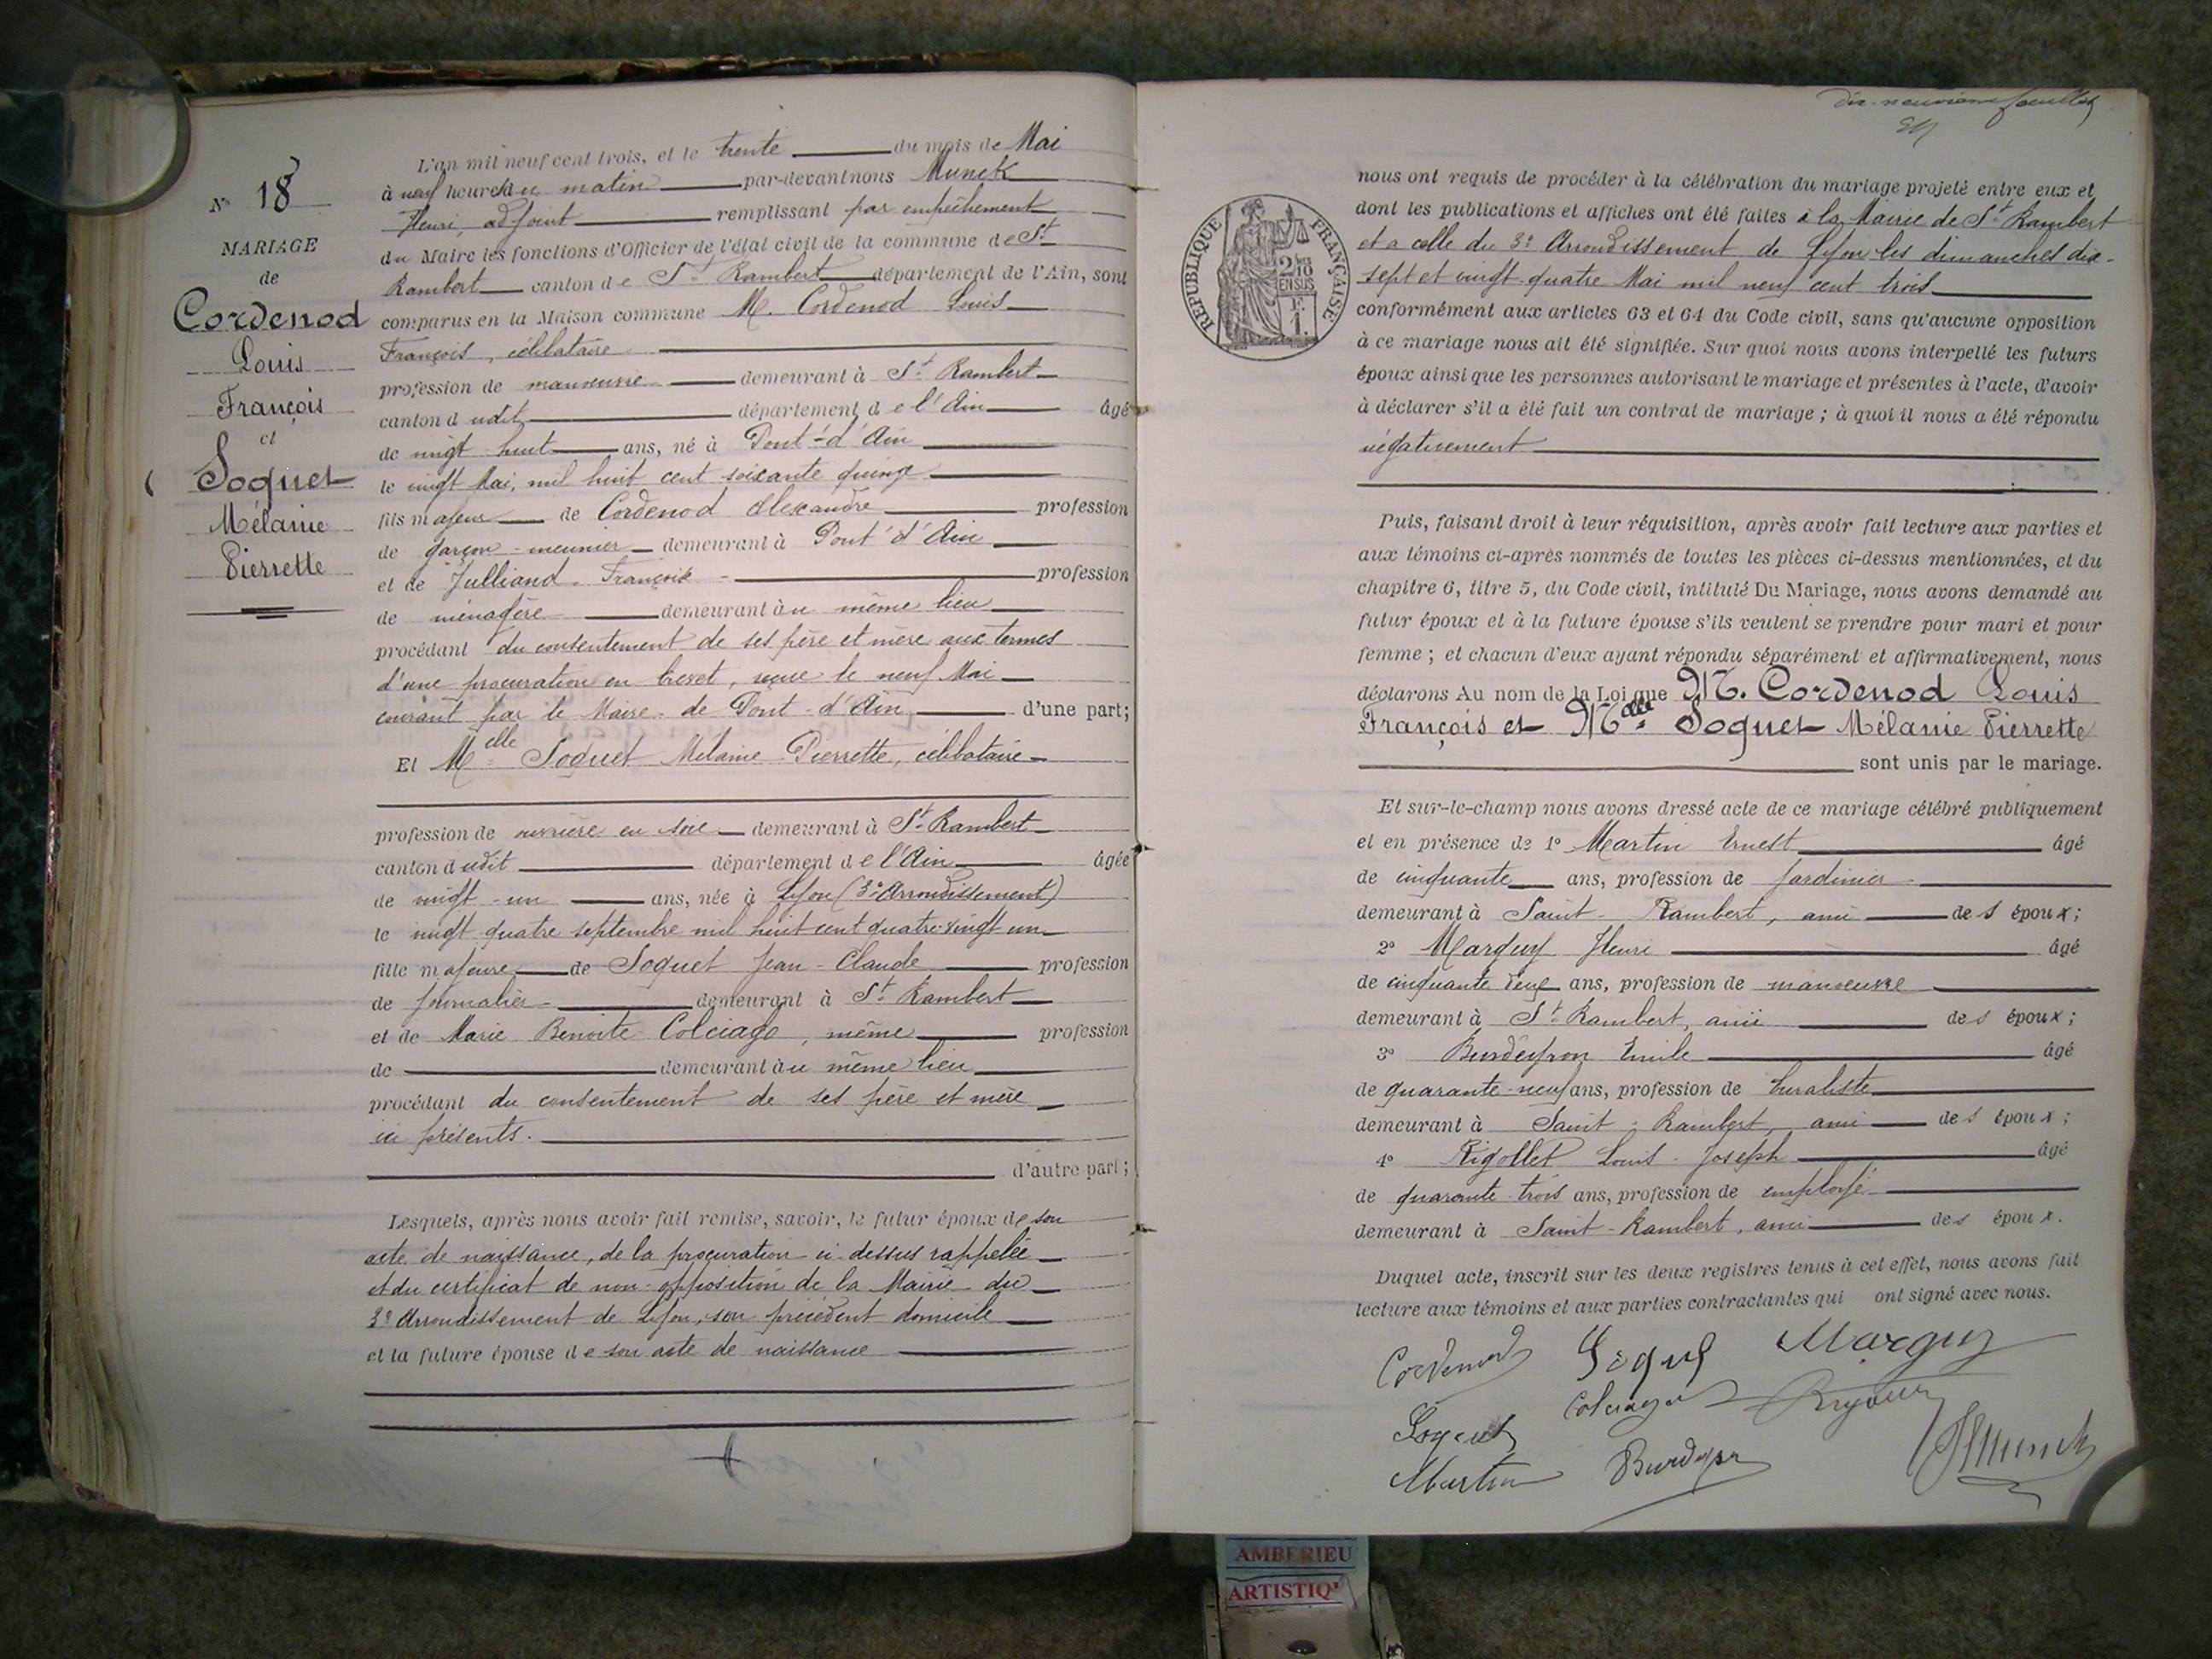 N° 18
MARIAGE
de
Cordenod
Louis
François
et
Soquet
Mélanie
Pierrette
L'an mil neuf cent trois, et le trente du mois de Mai
à neuf heures du matin par-devant nous Munck
Henri, adjoint remplissant par empêchement
du Maire les fonctions d'Officier de l'état civil de la commune de St
Rambert canton de St Rambert département de l'Ain, sont
comparus en la Maison commune M. Cordenod Louis
François, célibataire
profession de manoeuvre demeurant à St Rambert
canton dudit département de l'Ain âgé
de vingt huit ans, né à Pont-d'Ain
le vingt Mai, mil huit cent soixante quinze
fils majeur de Cordenod Alexandre profession
de garçon-meunier demeurant à Pont d'Ain
et de Julliand Françoise profession
de ménagère demeurant au même lieu
procédant du consentement de ses père et mère aux termes
d'une procuration en brevet, reçue le neuf Mai
courant par le Maire de Pont-d'Ain d'une part;
Et Melle Soquet Mélanie Pierrette, célibataire
profession de ouvrière en soie demeurant à St Rambert
canton dudit département de l'Ain âgée
de vingt-un ans, née à Lyon (3e Arrondissement)
le vingt quatre septembre mil huit cent quatre-vingt un
fille majeure de Soquet Jean-Claude profession
de journalier demeurant à St Rambert
et de Marie Benoite Colciago, même profession
de demeurant au même lieu
procédant du consentement de ses père et mère
ici présents.
d'autre part;
Lesquels, après nous avoir fait remise, savoir, le futur époux de son
acte de naissance, de la procuration ci-dessus rappelée
et du certificat de non-opposition de la Mairie du
3e Arrondissement de Lyon, son précédent domicile
et la future épouse de son acte de naissance
dix-neuvième feuillet
RÉPUBLIQUE FRANÇAISE
2/10
EN SUS
F
1
nous ont requis de procéder à la célébration du mariage projeté entre eux et
dont les publications et affiches ont été faites à la Mairie de St Rambert
et a celle du 3e Arrondissement de Lyon les dimanches dix-
sept et vingt-quatre Mai mil neuf cent trois
conformément aux articles 63 et 64 du Code civil, sans qu'aucune opposition
à ce mariage nous ait été signifiée. Sur quoi nous avons interpellé les futurs
époux ainsi que les personnes autorisant le mariage et présentes à l'acte, d'avoir
à déclarer s'il a été fait un contrat de mariage ; à quoi il nous a été répondu
négativement
Puis, faisant droit à leur réquisition, après avoir fait lecture aux parties et
aux témoins ci-après nommés de toutes les pièces ci-dessus mentionnées, et du
chapitre 6, titre 5, du Code civil, intitulé Du Mariage, nous avons demandé au
futur époux et à la future épouse s'ils veulent se prendre pour mari et pour
femme ; et chacun d'eux ayant répondu séparément et affirmativement, nous
déclarons Au nom de la Loi que M. Cordenod Louis
François et Melle Soquet Mélanie Pierrette
sont unis par le mariage.
Et sur-le-champ nous avons dressé acte de ce mariage célébré publiquement
et en présence de 1° Martin Ernest âgé
de cinquante ans, profession de jardinier
demeurant à Saint-Rambert, ami des époux;
2° Marguy Henri âgé
de cinquante deux ans, profession de manoeuvre
demeurant à St Rambert, ami des époux;
3° Burdeyron Emile âgé
de quarante-neuf ans, profession de buraliste
demeurant à Saint-Rambert, ami des époux;
4° Rigollet Louis-Joseph âgé
de quarante-trois ans, profession de employé
demeurant à Saint-Rambert, ami des époux.
Duquel acte, inscrit sur les deux registres tenus à cet effet, nous avons fait
lecture aux témoins et aux parties contractantes qui ont signé avec nous.
Cordenod Soquet Marguy
Colciago
Soquet
Martin Burdeyron HMunck
AMBERIEU
ARTISTIQ